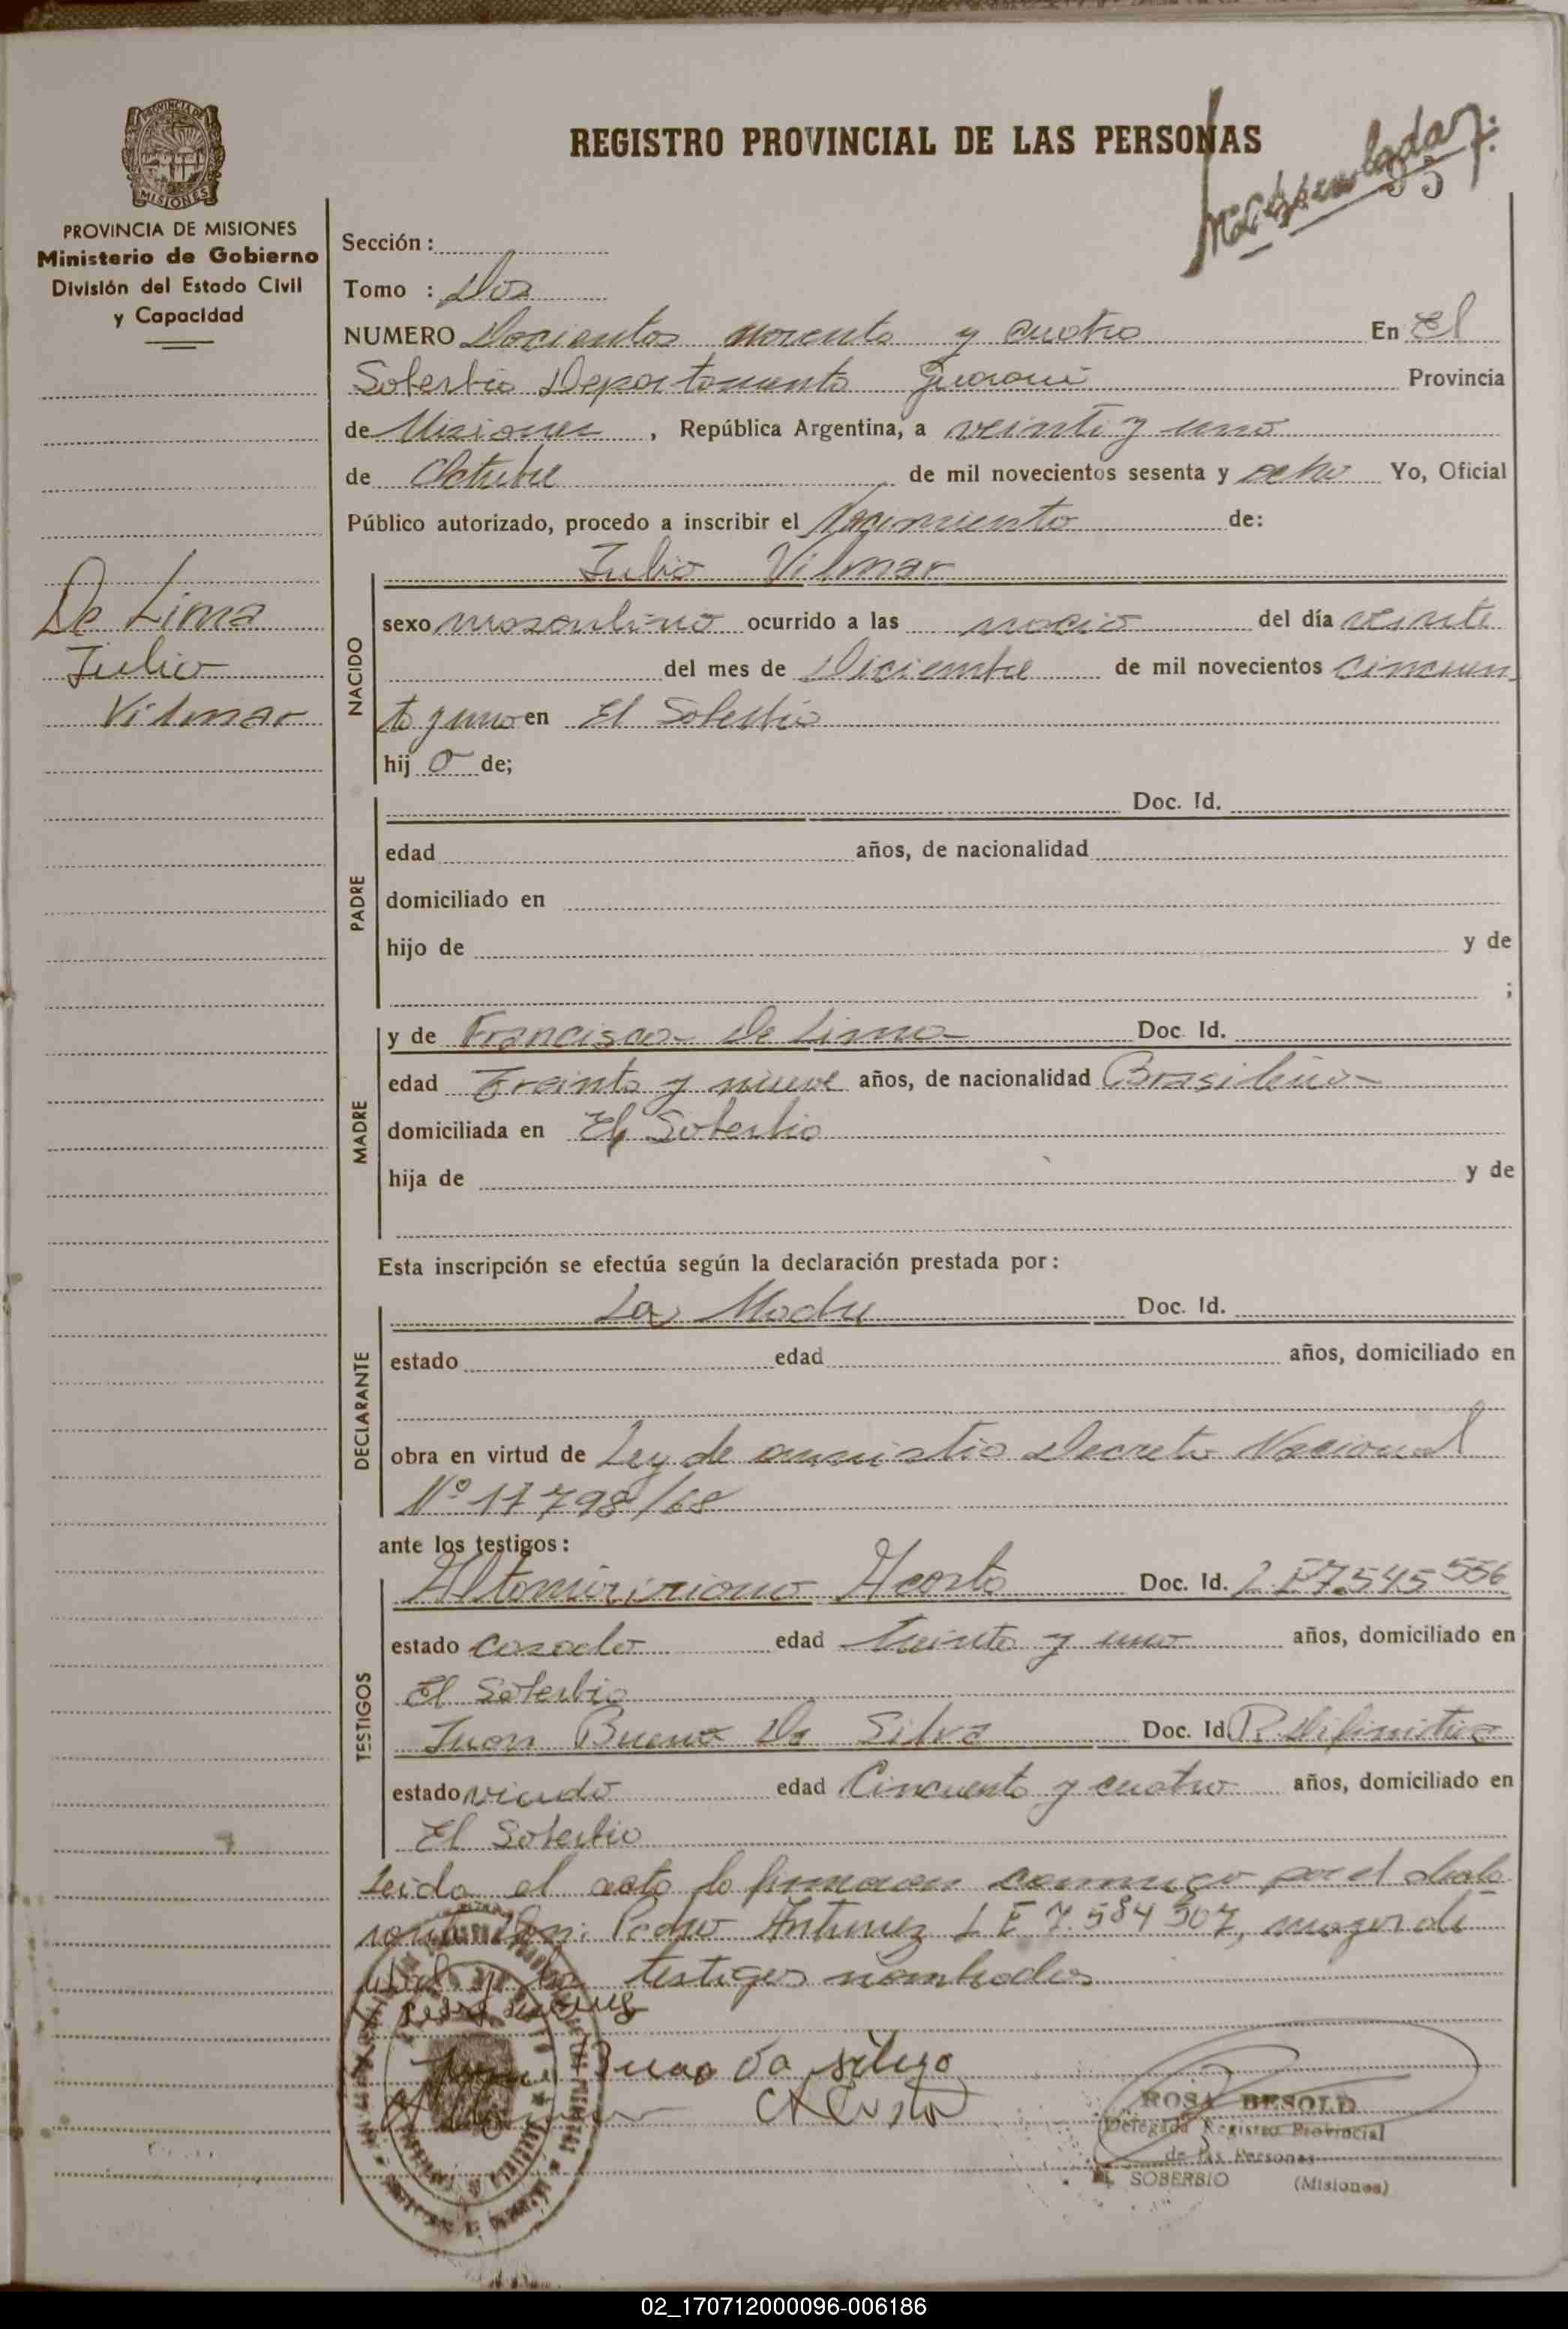 REGISTRO PROVINCIAL DE LAS PERSONAS
35
PROVINCIA DE
MISIONES
PROVINCIA DE MISIONES
Ministerio de Gobierno
División del Estado Civil
y Capacidad
Sección :
Tomo : Dos
NUMERO Docientos noventa y cuatro En El
Soberbio Departamento Guarani Provincia
de Misiones, República Argentina, a veinti y uno
de Octubre de mil novecientos sesenta y ocho Yo, Oficial
Público autorizado, procedo a inscribir el Nacimiento de:
Julio Vilmar
De Lima
Julio
Vilmar
NACIDO
sexo masculino ocurrido a las nació del día veinte
del mes de Diciembre de mil novecientos cincuen
ta y uno en El Soberbio
hij o de;
PADRE
Doc. Id.
edad años, de nacionalidad
domiciliado en
hijo de y de
;
MADRE
y de Francisca De Lima Doc. Id.
edad Treinta y nueve años, de nacionalidad Brasileña
domiciliada en El Soberbio
hija de y de
Esta inscripción se efectúa según la declaración prestada por :
DECLARANTE
La Madre Doc. Id.
estado edad años, domiciliado en
obra en virtud de Ley de amnistia Decreto Nacional
Nº 17798/68
ante los testigos :
TESTIGOS
Acosta Doc. Id. L E 7.545 556
estado casado edad treinta y uno años, domiciliado en
El Soberbio
Juan Bueno Da Silva Doc. Id. R. Difinitiva
estado viudo edad Cincuenta y cuatro años, domiciliado en
El Soberbio
Leida el acta la firmaron conmigo por el decla
rante Don: Pedro Antunez L E 7.584 507, mayor de
edad y los testigos nombrados
Bueno da silva
Acosta
ROSA BESOLD
Delegada Registro Provincial
de las Personas
EL SOBERBIO (Misiones)
02_170712000096-006186